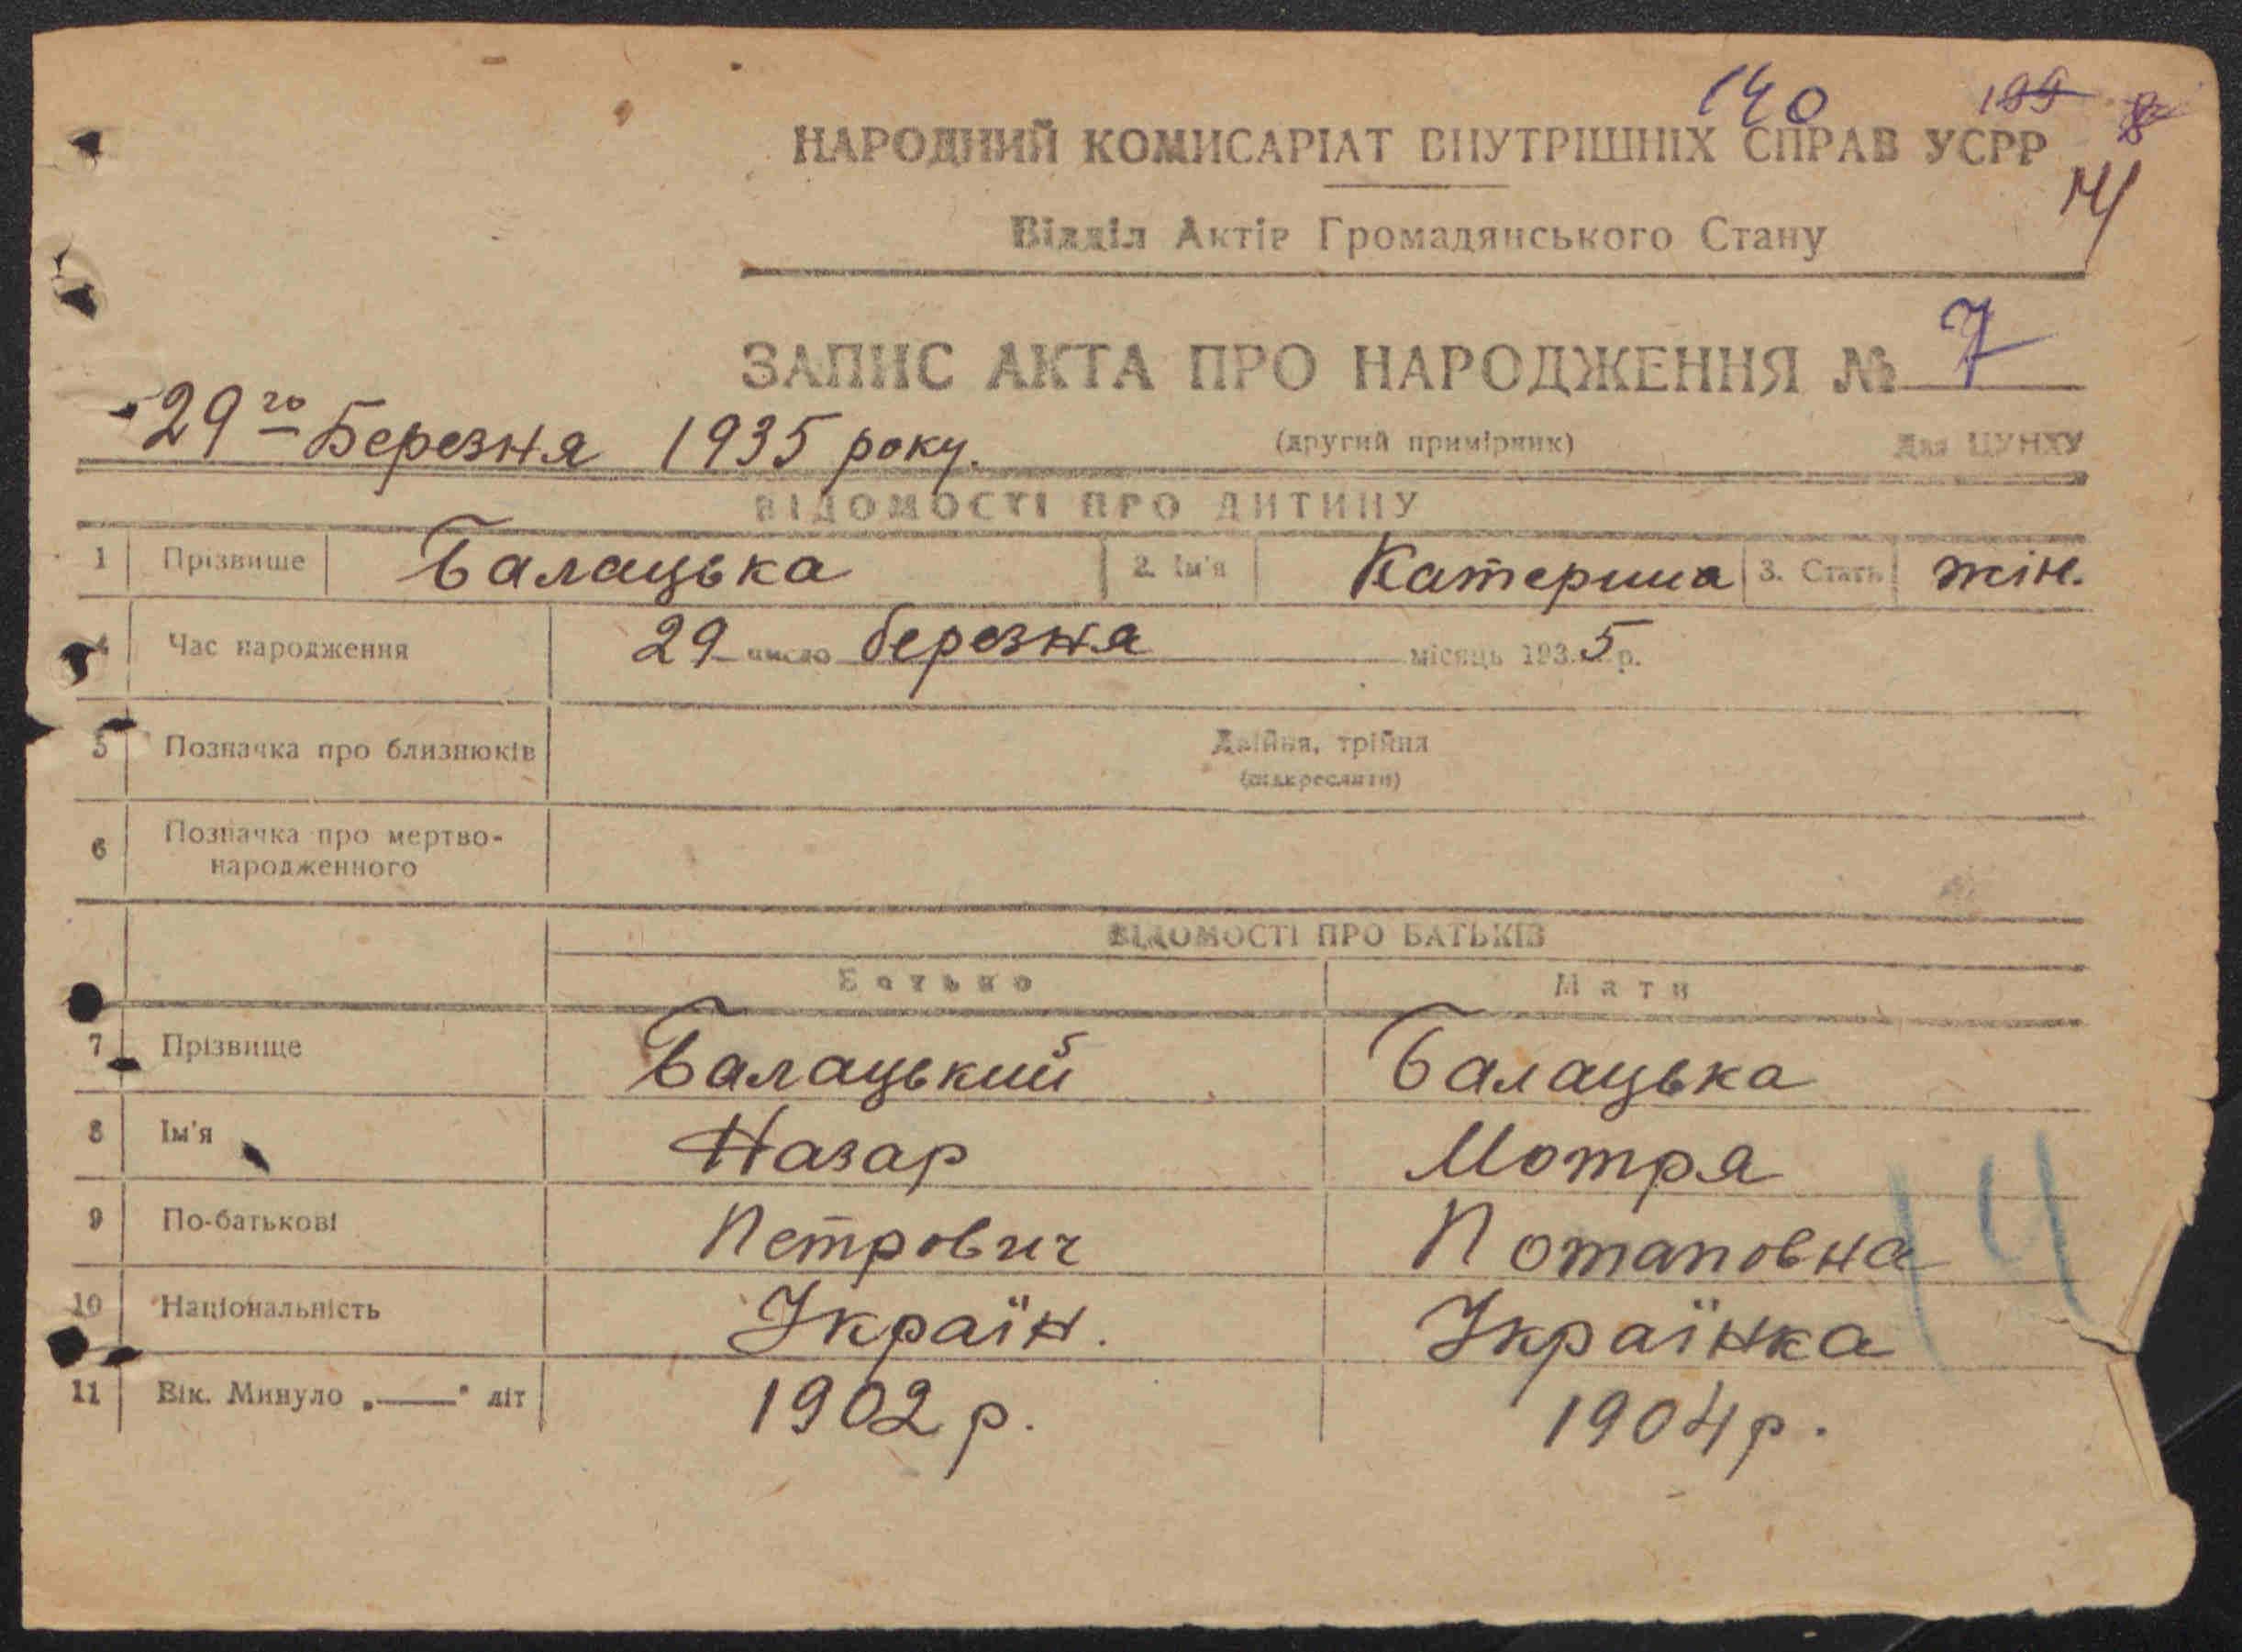 140 199
НАРОДНИЙ КОМИСАРІАТ ВНУТРІШНІХ СПРАВ УСРР
14
Відділ Актів Громадянського Стану
ЗАПИС АКТА ПРО НАРОДЖЕННЯ № 7
29го Березня 1935 року.
(другий примірник) Для ЦУНХУ
ВІДОМОСТІ ПРО ДИТИНУ
1 Прізвище Балацька 2. Ім'я Катерина 3. Стать жін.
4 Час народження 29 число березня місяць 1935 р.
5 Позначка про близнюків Двійня, трійня
(підкреслити)
6 Позначка про мертво-
народженного
ВІДОМОСТІ ПРО БАТЬКІВ
Батько Мати
7 Прізвище Балацький Балацька
8 Ім'я Назар Мотря
9 По-батькові Петрович Потаповна
14
10 Національність Україн. Українка
11 Вік. Минуло „——" літ 1902 р. 1904 р.